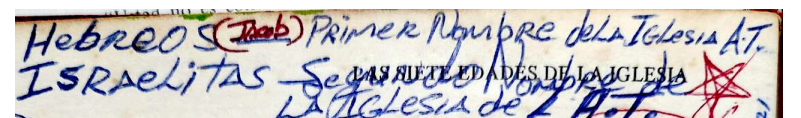 HebreOS (Jacob) PRiMeR Nombre de LA IGLesiA A.T.
ISRAeLiTAS - Segundo Nombre de
LAS SIETE EDADES DE LA IGLESIA
LA IGLESiA de L A.T.